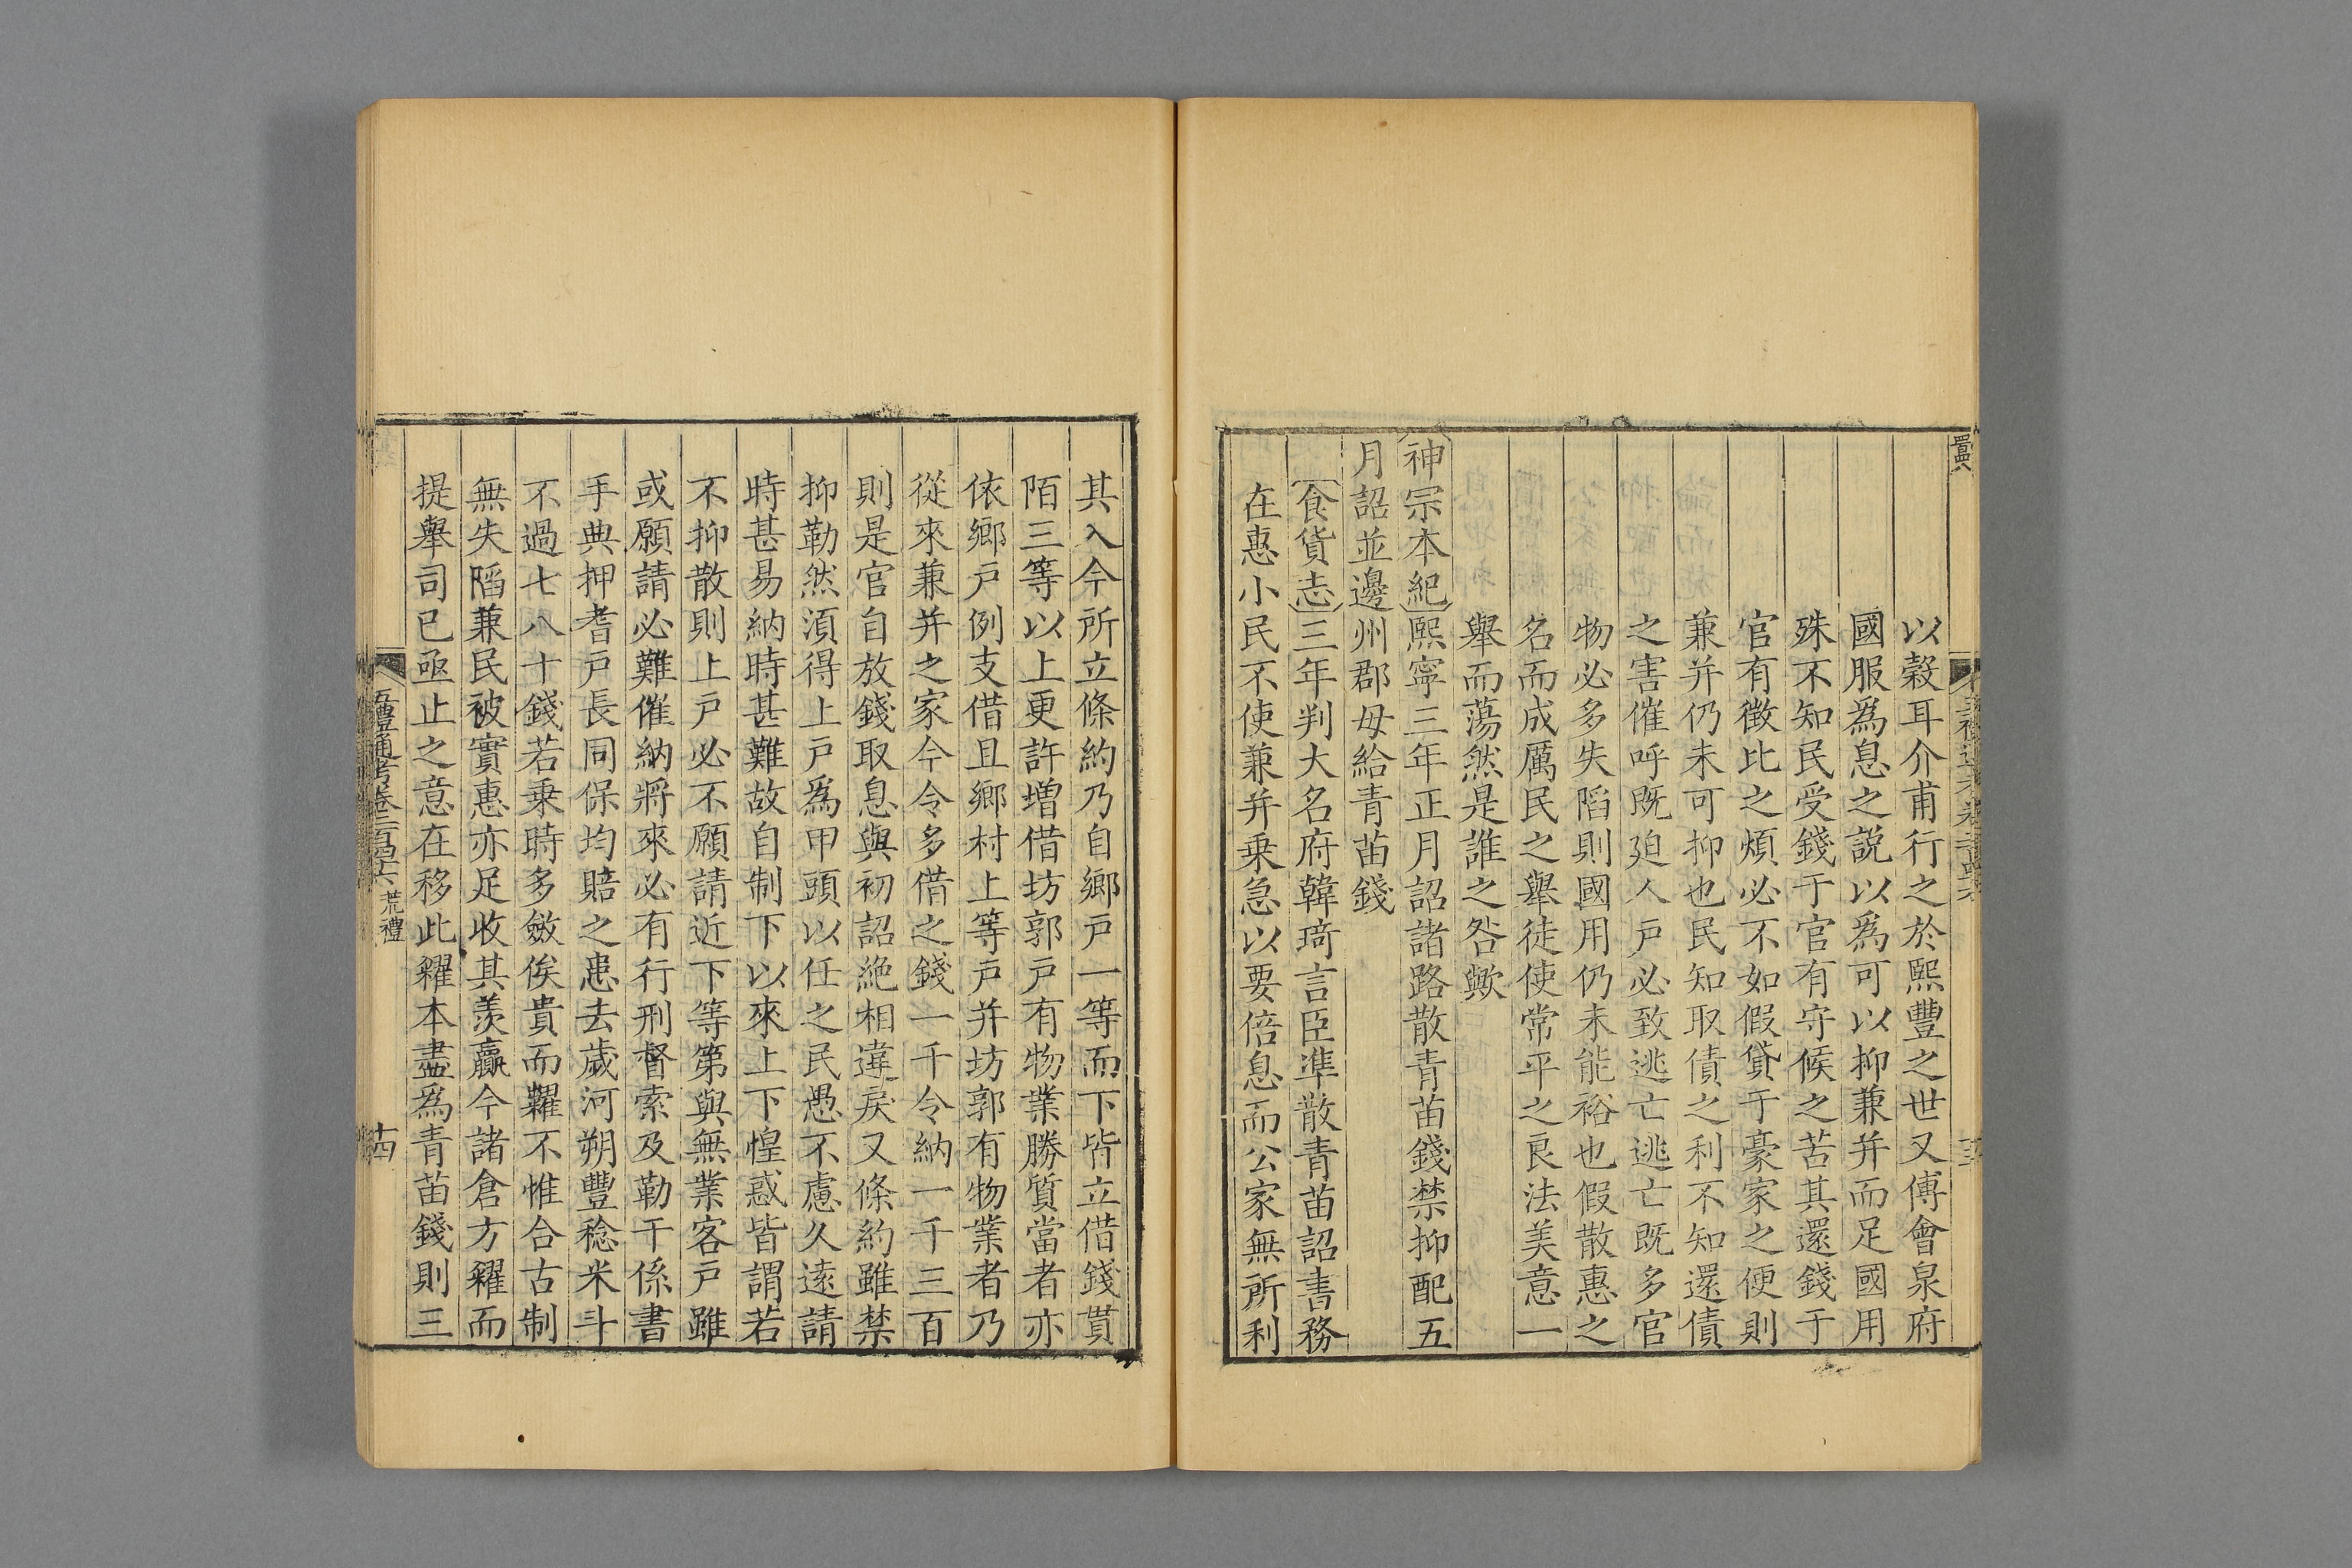 以穀耳介甫行之於熙豐之世又傅會泉府
國服爲息之説以爲可以抑兼并而足國用
殊不知民受錢于官有守候之苦其還錢于
官有徵比之煩必不如假貸于豪家之便則
兼并仍未可抑也民知取債之利不知還債
之害催呼既迫人戸必致逃亡逃亡既多官
物必多失陷則國用仍未能裕也假散惠之
名而成厲民之舉徒使常平之良法美意一
舉而蕩然是誰之咎歟
神宗本紀熙寧三年正月詔諸路散青苗錢禁抑配五
月詔並邊州郡毋給青苗錢
食貨志三年判大名府韓琦言臣準散青苗詔書務
在惠小民不使兼并乗急以要倍息而公家無所利
其入今所立條約乃自鄉戸一等而下皆立借錢貫
陌三等以上更許増借坊郭戸有物業勝質當者亦
依鄉戸例支借且鄉村上等戸并坊郭有物業者乃
從來兼并之家今令多借之錢一千令納一千三百
則是官自放錢取息與初詔絶相違戾又條約雖禁
抑勒然須得上戸爲甲頭以任之民愚不慮久遠請
時甚易納時甚難故自制下以來上下惶惑皆謂若
不抑散則上戸必不願請近下等第與無業客戸雖
或願請必難催納將來必有行刑督索及勒干係書
手典押耆戸長同保均賠之患去歲河朔豐稔米斗
不過七八十錢若乗時多斂俟貴而糶不惟合古制
無失陷兼民被實惠亦足收其羨贏今諸倉方糴而
提舉司已亟止之意在移此糴本盡爲青苗錢則三
五禮通考卷二百四十六 荒禮
十四